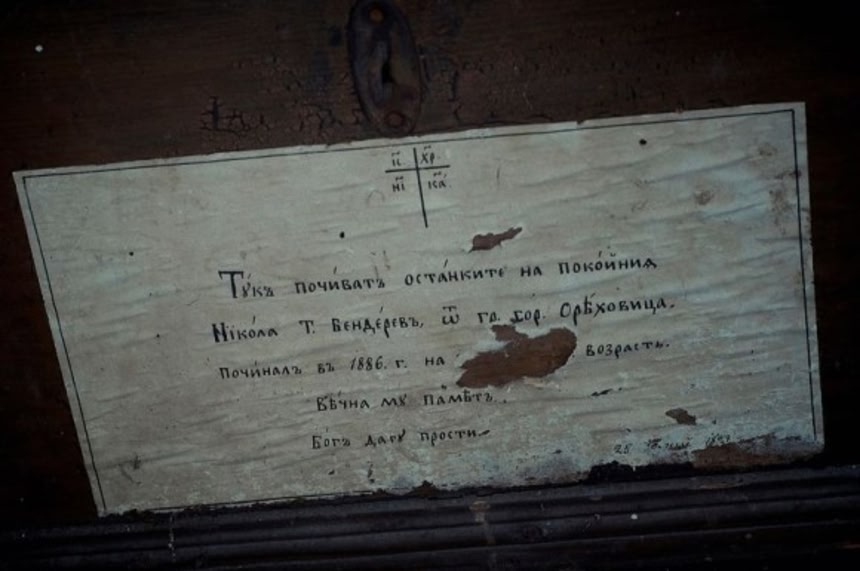 І҃С ХР҃
НІ КА
Тꙋ́къ почи́ватъ оста́нките на поко́йния
Нікола Т. Бенде́ревъ, ѿ гр. гор. Орѣ́ховица.
Почи́налъ въ 1886. г. на возрасть.
Вѣ́чна мꙋ па́мѣть.
Бо́гъ да гꙋ прости.
25